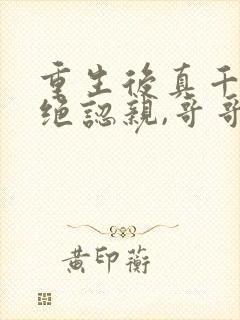 重生後真千
绝認親,哥哥
黄印蘅